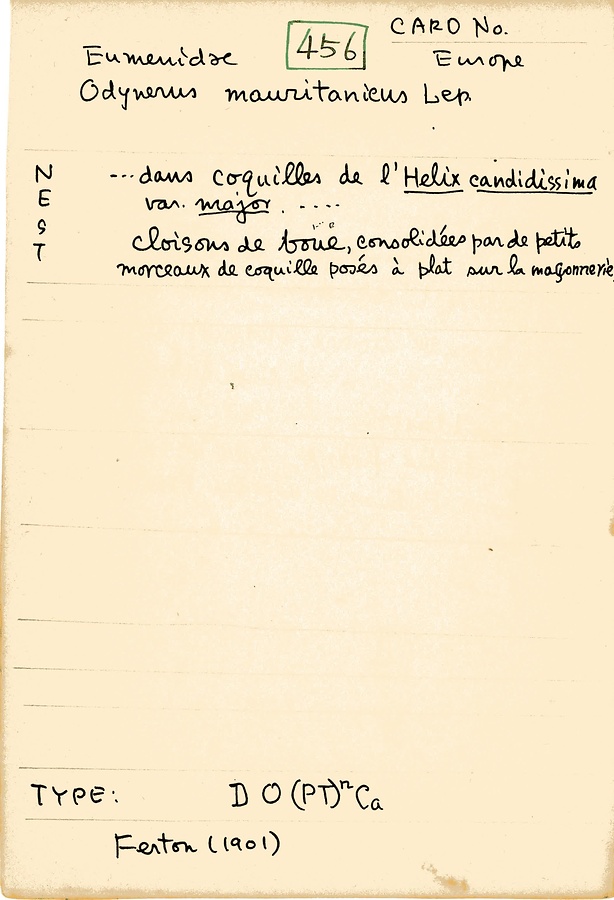 CARD No.
456
Eumenidae Europe
Odynerus mauritanicus Lep.
NEST
---dans coquilles de l'Helix candidissima
var. major. ----
cloisons de boue, consolidées par de petits
morceaux de coquille posés à plat sur la maçonnerie
TYPE: D O (PT)ⁿCa
Ferton (1901)